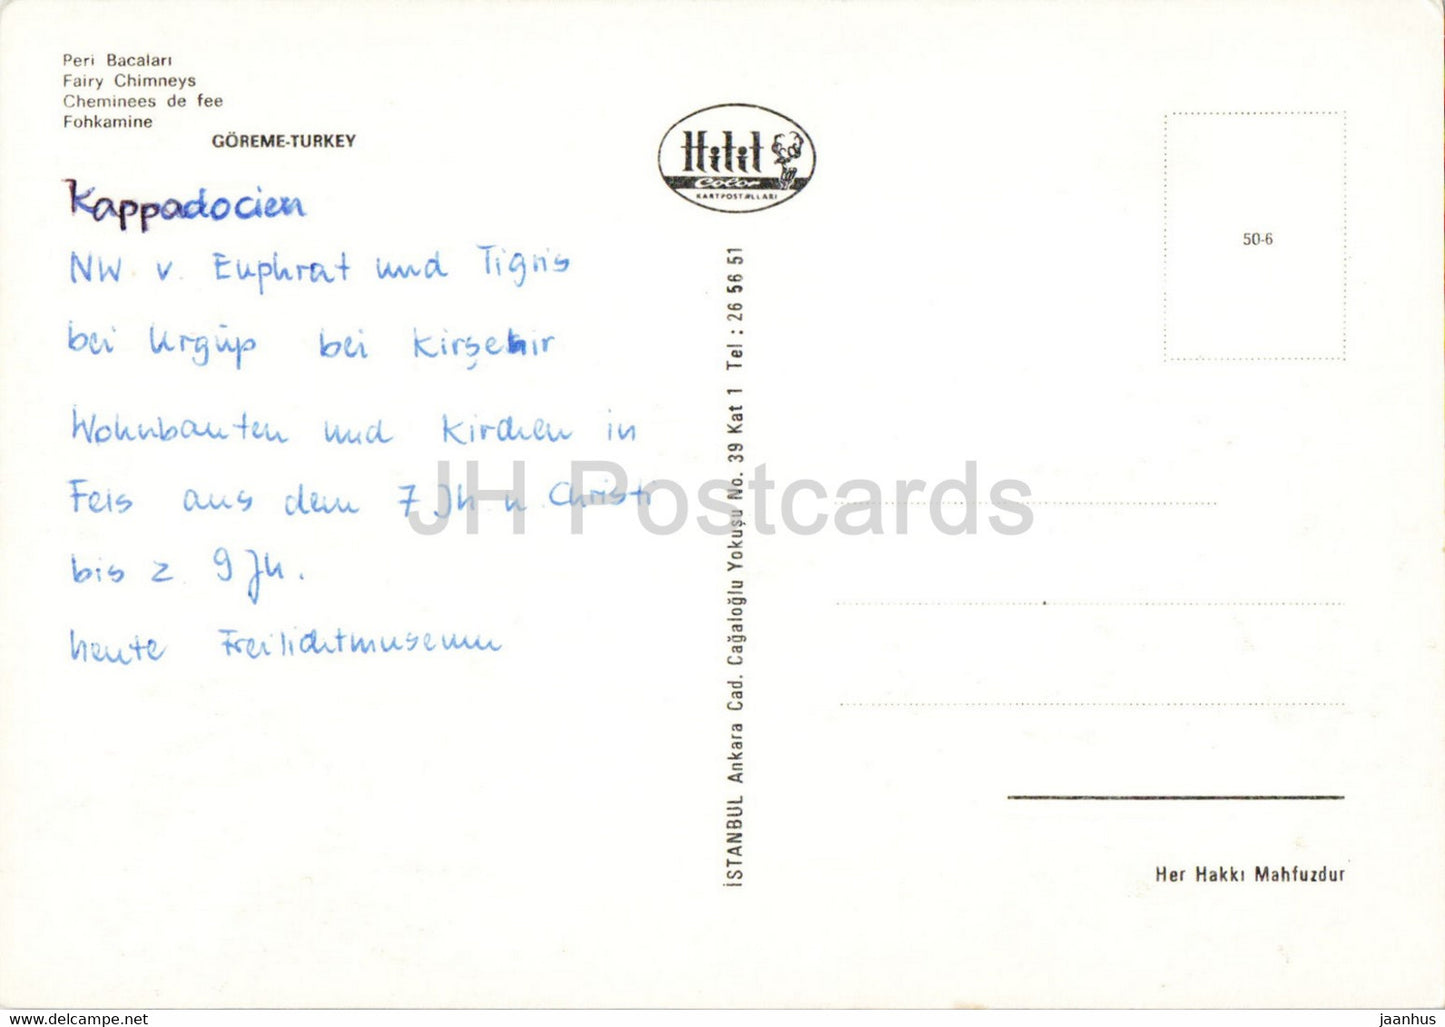 Peri Bacaları
Fairy Chimneys
Cheminees de fee
Fohkamine
GÖREME-TURKEY
Kappadocien
NW. v. Euphrat und Tigris
bei Ürgüp bei Kirşehir
Wohnbauten und Kirchen in
Fels aus dem 7 Jh n Christi
bis z. 9 Jh.
heute Freilichtmuseum
Hitit
Color
KARTPOSTALLARI
İSTANBUL Ankara Cad. Cağaloğlu Yokuşu No. 39 Kat 1 Tel : 26 56 51
50-6
Her Hakkı Mahfuzdur
JH Postcards
https://www.delcampe.net
jaanhus